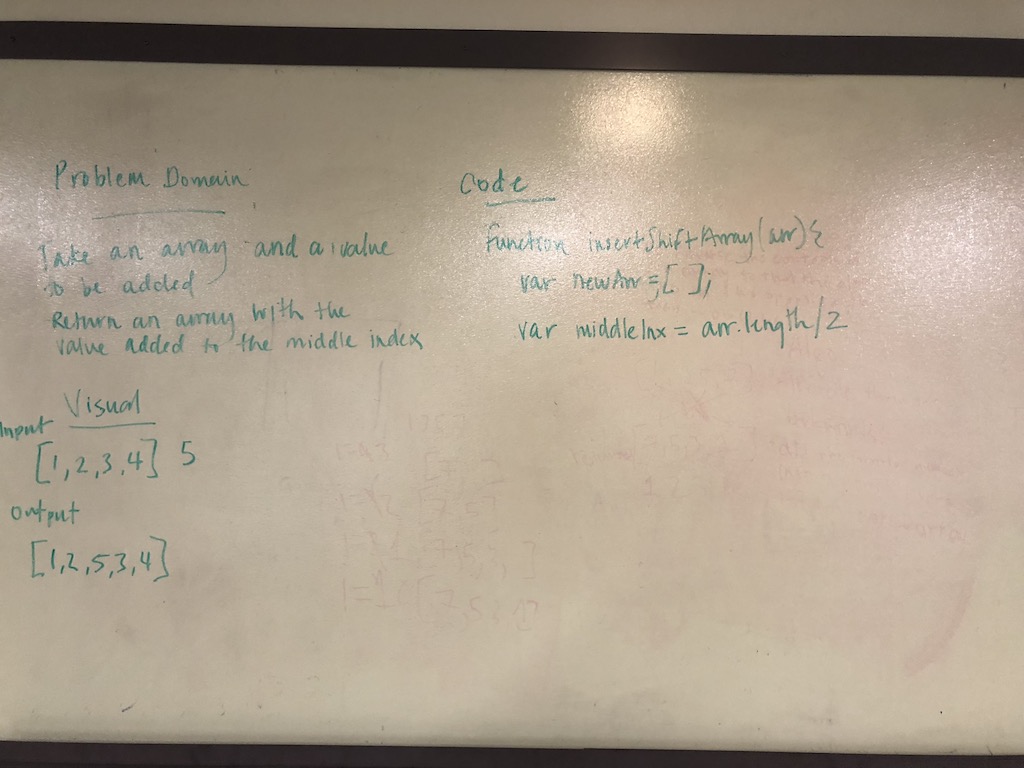 Problem Domain
Take an array and a value
to be added
Return an array with the
value added to the middle index
Visual
Input
[1,2,3,4] 5
output
[1,2,5,3,4]
Code
function insertShiftArray(arr){
var newArr = [ ];
var middleInx = arr.length/2